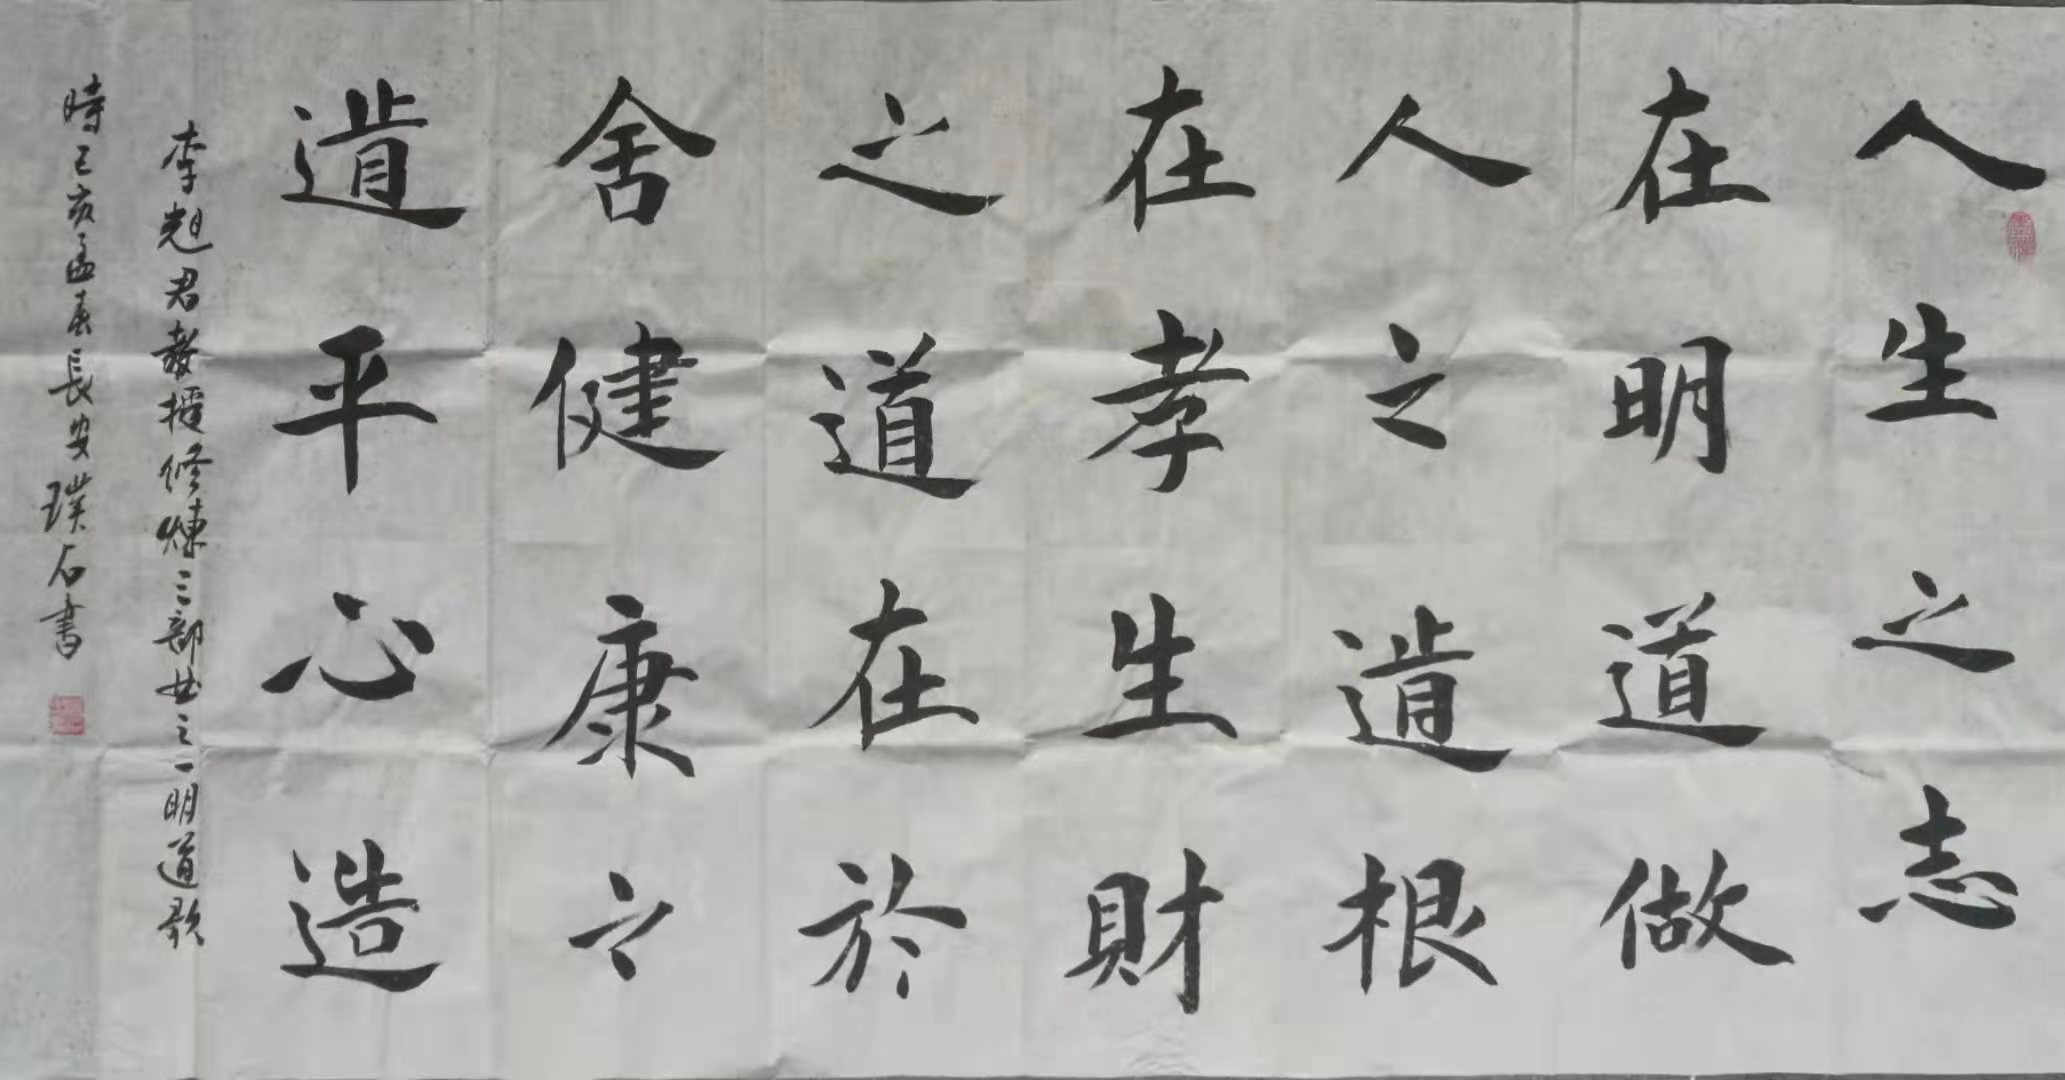 人生之志
在明道做
人之道根
在孝生財
之道在於
舍健康之
道平心造
李君教授修煉三部曲之一明道歌
時己亥孟春長安璞石書